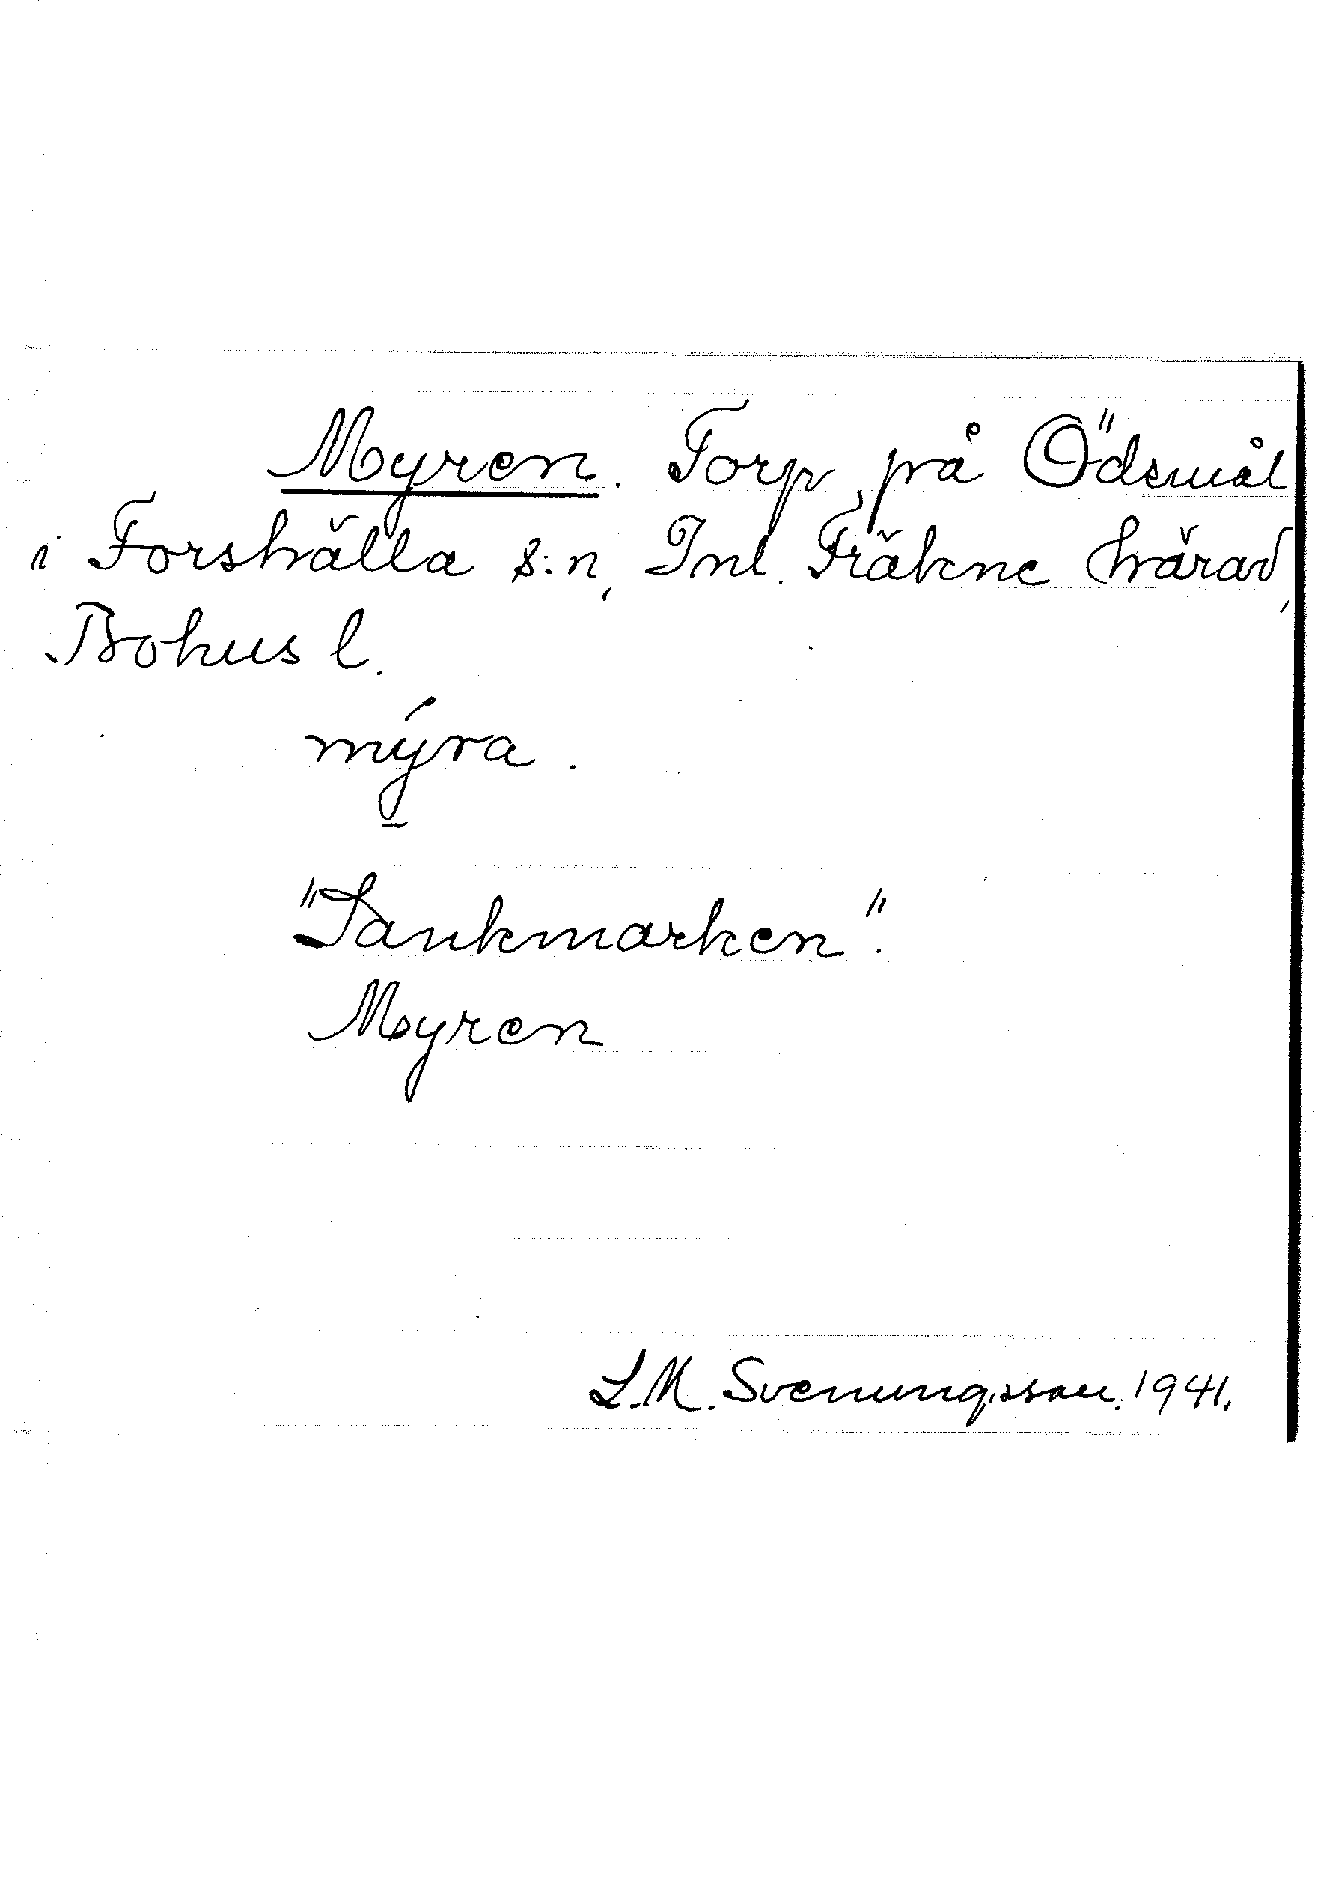 Myren. Torp på Ödsmål
i Forshälla s:n, Inl. Fräkne härad,
Bohus l.
mýra.
"Sankmarken".
Myren
L.M. Svenungsson. 1941.